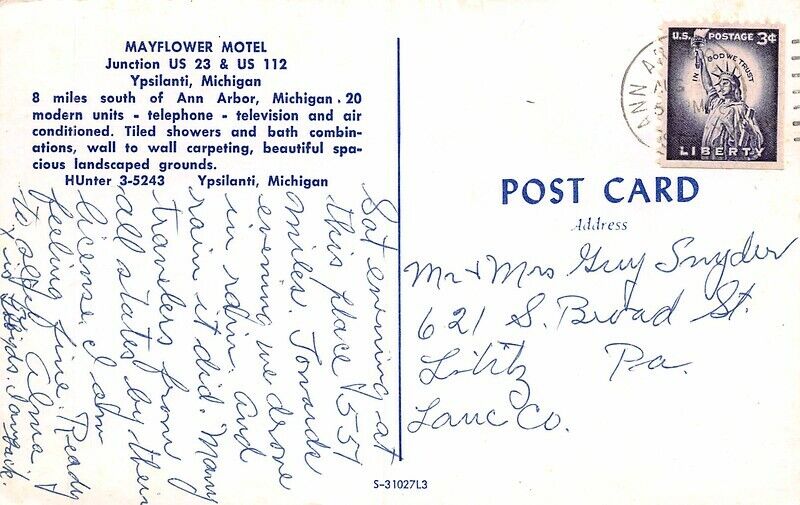 MAYFLOWER MOTEL
Junction US 23 & US 112
Ypsilanti, Michigan
8 miles south of Ann Arbor, Michigan. 20
modern units - telephone - television and air
conditioned. Tiled showers and bath combin-
ations, wall to wall carpeting, beautiful spa-
cious landscaped grounds.
HUnter 3-5243 Ypsilanti, Michigan
Sat evening at
this place 1557
miles. Towards
evening we drove
in rain. And
rain it did. Many
travelers from
all states by their
license. I am
feeling fine. Ready
to Alma
is Lloyds.
U.S. POSTAGE 3¢
IN GOD WE TRUST
LIBERTY
ANN A
POST CARD
Address
Mr & Mrs Guy Snyder
621 S. Broad St.
Lititz Pa.
Lanc Co.
S-31027L3